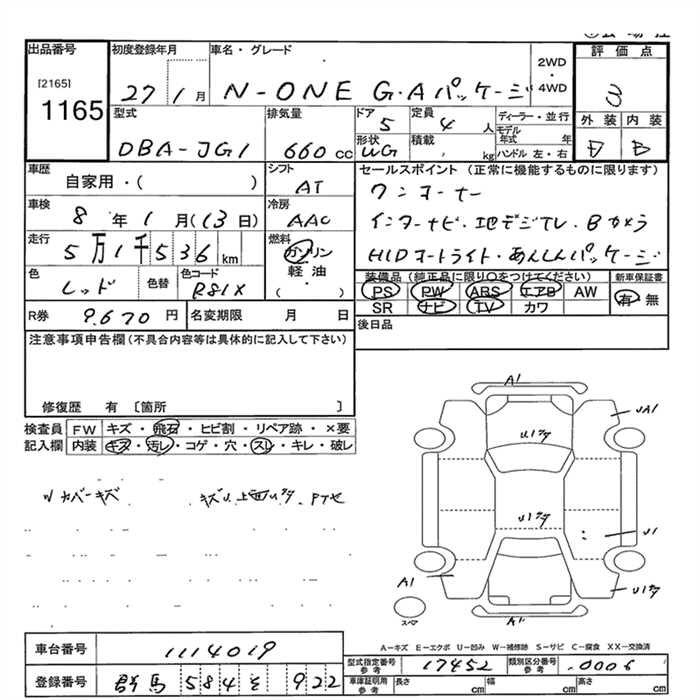 出品番号
[2165]
1165
初度登録年月
27 1 月
車名・グレード
N-ONE G・Aパッケージ
2WD
・
4WD
評価点
3
型式
DBA-JG1
排気量
660 cc
ドア
5
定員
4 人
形状
WG
積載
kg
ディーラー・並行
モデル年式 年
ハンドル 左・右
外装 内装
D B
車歴
自家用・( )
シフト
AT
車検
8 年 1 月 (13 日)
冷房
AAC
走行
5万1千536 km
燃料
ガソリン
軽油
( )
色
レッド
色替
色コード
R81X
セールスポイント (正常に機能するものに限ります)
ワンオーナー
インターナビ・地デジTV・Bカメラ
HIDオートライト・あんしんパッケージ
装備品(純正品に限り○をつけてください)
PS PW ABS エアB AW
SR ナビ TV カワ
新車保証書
有 無
R券 9,670 円
名変期限 月 日
後日品
注意事項申告欄(不具合内容等は具体的に記入して下さい)
修復歴 有 〔箇所 〕
検査員
記入欄
FW キズ・飛石・ヒビ割・リペア跡・×要
内装 キズ・汚レ・コゲ・穴・スレ・キレ・破レ
カバーキズ
上面
A1
UA1
U1
U1
U1
U1
A1
A1
スペア
A―キズ E―エクボ U―凹み W―補修跡 S―サビ C―腐食 XX―交換済
車台番号 1114019
登録番号 群馬 584 そ 922
型式指定番号
参考
17452
類別区分番号
参考
0006
車庫証明用
参考
長さ cm
幅 cm
高さ cm